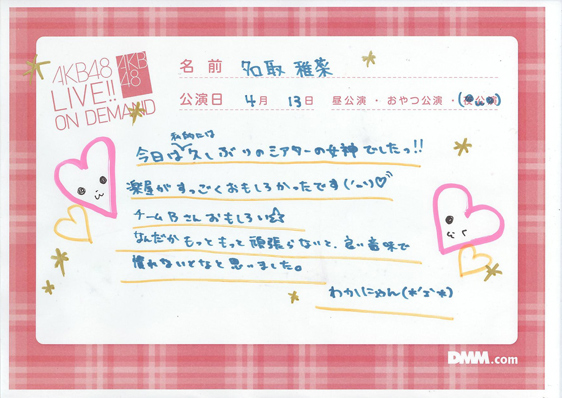 AKB48
LIVE!!
ON DEMAND
AKB
48
名前 名取 稚菜
公演日 4月 13日 昼公演・おやつ公演・夜公演
私的には
今日は久しぶりのシアターの女神でしたっ!!
楽屋がすっごくおもしろかったです(´ー`)♡
チームBさんおもしろい☆
なんだかもっともっと頑張らないと、良い意味で
慣れないとなと思いました。
わかにゃん(*´з`*)
DMM.com